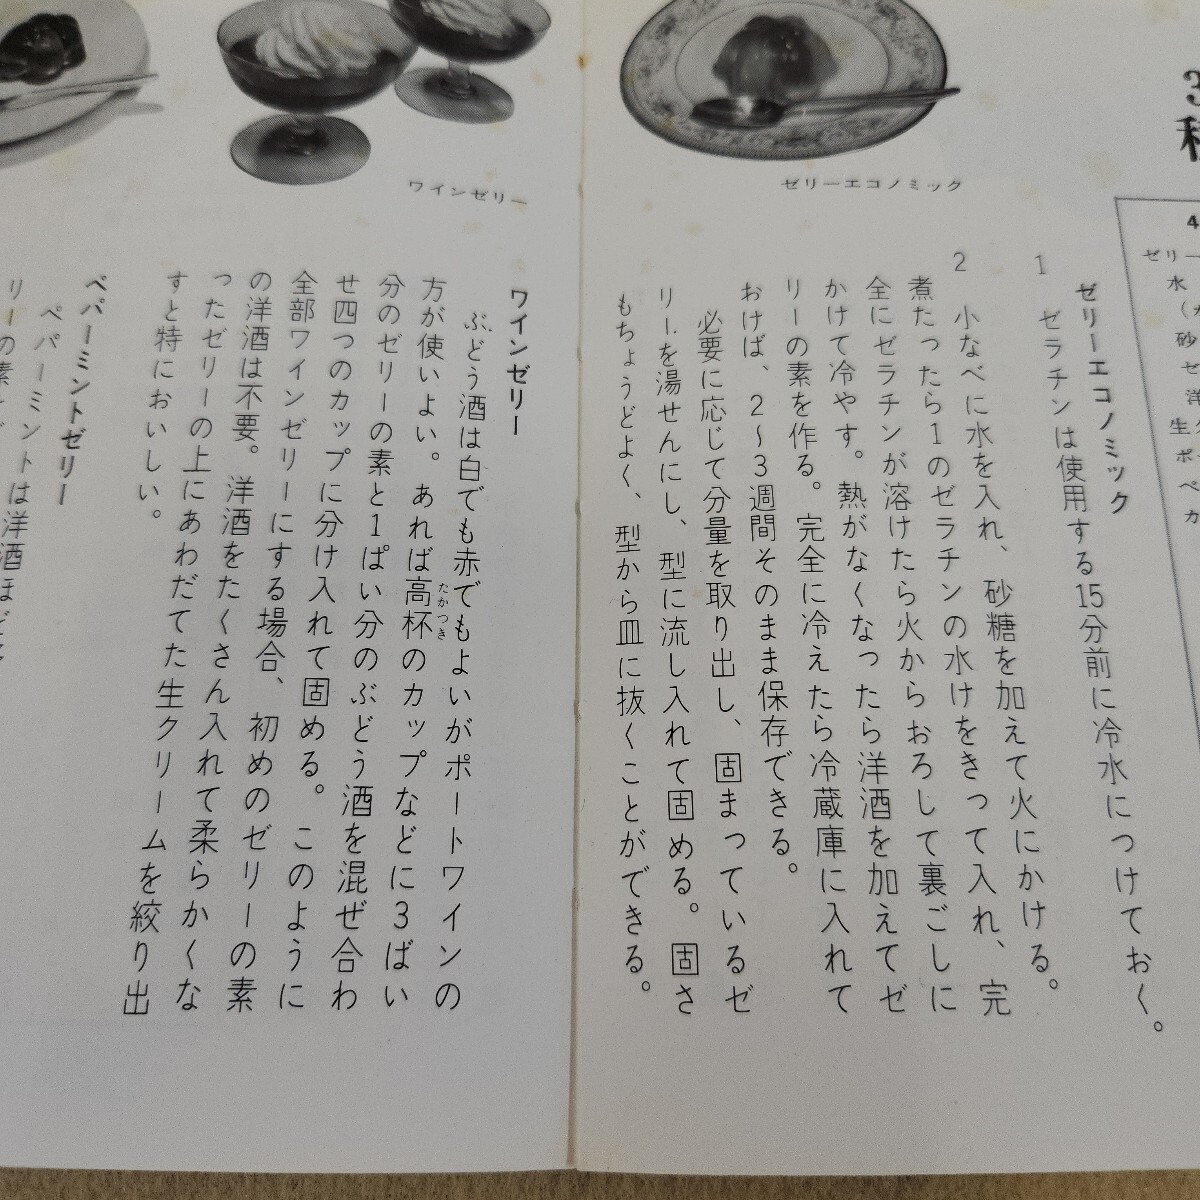 3
ゼリー
水
砂
ゼ
洋
生
ゼリーエコノミック
1 ゼラチンは使用する15分前に冷水につけておく。
2 小なべに水を入れ、砂糖を加えて火にかける。
煮たったら1のゼラチンの水けをきって入れ、完
全にゼラチンが溶けたら火からおろして裏ごしに
かけて冷やす。熱がなくなったら洋酒を加えてゼ
リーの素を作る。完全に冷えたら冷蔵庫に入れて
おけば、2〜3週間そのまま保存できる。
必要に応じて分量を取り出し、固まっているゼ
リーを湯せんにし、型に流し入れて固める。固さ
もちょうどよく、型から皿に抜くことができる。
ゼリーエコノミック
ワインゼリー
ワインゼリー
ぶどう酒は白でも赤でもよいがポートワインの
方が使いよい。あれば高杯のカップなどに3ばい
たかつき
分のゼリーの素と1ぱい分のぶどう酒を混ぜ合わ
せ四つのカップに分け入れて固める。このように
全部ワインゼリーにする場合、初めのゼリーの素
の洋酒は不要。洋酒をたくさん入れて柔らかくな
ったゼリーの上にあわだてた生クリームを絞り出
すと特においしい。
ペパーミントゼリー
ペパーミントは洋酒ほど
リーの素